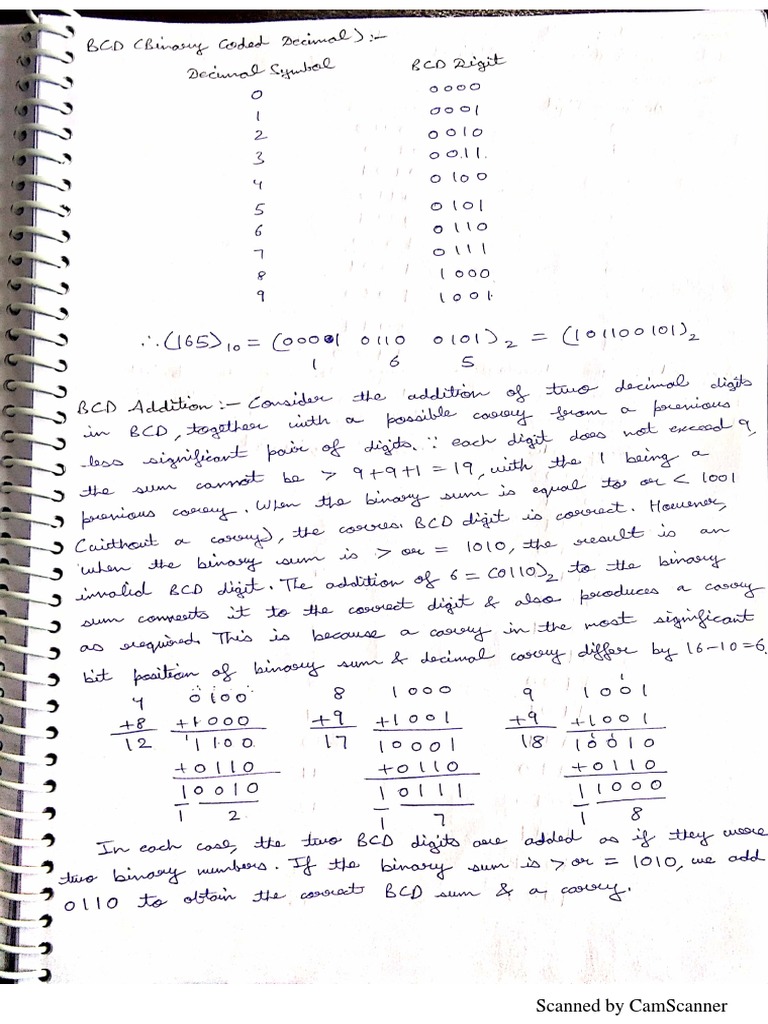 BCD (Binary Coded Decimal) :-
Decimal Symbol BCD Digit
0 0000
1 0001
2 0010
3 0011
4 0100
5 0101
6 0110
7 0111
8 1000
9 1001
∴ (165)10 = (0001 0110 0101)2 = (101100101)2
1 6 5
BCD Addition :- Consider the addition of two decimal digits
in BCD, together with a possible carry from a previous
less significant pair of digits. ∵ each digit does not exceed 9,
the sum cannot be > 9+9+1 = 19, with the 1 being a
previous carry. When the binary sum is equal to or < 1001
(without a carry), the corres. BCD digit is correct. However,
when the binary sum is > or = 1010, the result is an
invalid BCD digit. The addition of 6 = (0110)2 to the binary
sum converts it to the correct digit & also produces a carry
as required. This is because a carry in the most significant
bit position of binary sum & decimal carry differ by 16-10=6.
4 0100 8 1000 9 1001
+8 +1000 +9 +1001 +9 +1001
12 1100 17 10001 18 10010
+0110 +0110 +0110
10010 10111 11000
1 2 1 7 1 8
In each case, the two BCD digits are added as if they were
two binary numbers. If the binary sum is > or = 1010, we add
0110 to obtain the correct BCD sum & a carry.
Scanned by CamScanner